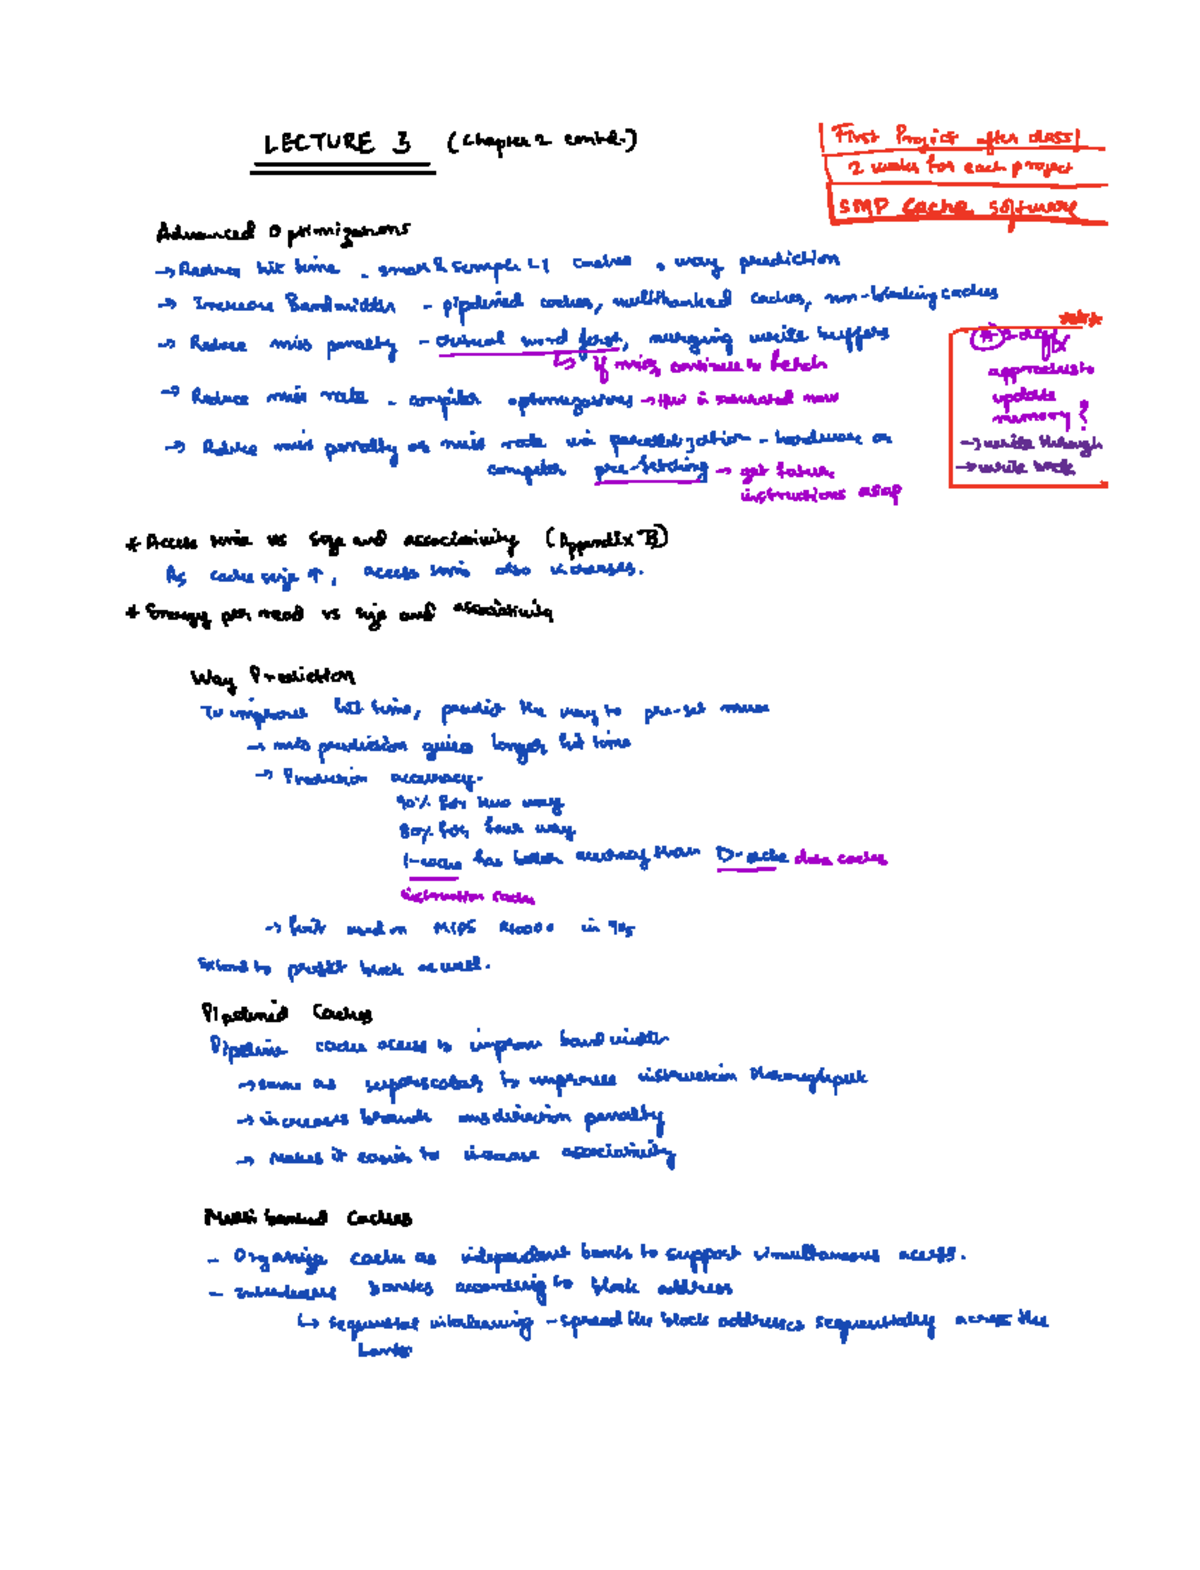 LECTURE 3 (Chapter 2 contd.)
First Project after class!
2 weeks for each project
SMP Cache software
Advanced Optimizations
→ Reduce hit time - small & simple L1 caches, way prediction
→ Increase Bandwidth - pipelined caches, multibanked caches, non-blocking caches
→ Reduce miss penalty - critical word first, merging write buffers
↳ if miss, continue to fetch
→ Reduce miss rate - compiler optimizations → this is saturated now
→ Reduce miss penalty or miss rate via parallelization - hardware or
compiler pre-fetching → get future
instructions asap
approaches to
update
memory?
→ write through
→ write back
* Access time vs size and associativity (Appendix B)
As cache size ↑, access time also increases.
* Energy per read vs size and associativity
Way Prediction
To improve hit time, predict the way to pre-set mux
→ mis prediction gives longer hit time
→ Prediction accuracy.
90% for two way
80% for four way
I-cache has better accuracy than D-cache data cache
instruction cache
→ first used on MIPS R10000 in 90s
Extend to predict block as well.
Pipelined Caches
Pipeline cache access to improve bandwidth
→ same as superscalar, to improve instruction throughput
→ increases branch penalty
→ Makes it easier to increase associativity
Multi banked Caches
- Organize cache as independent banks to support simultaneous access.
- Interleave banks according to block address
↳ sequential interleaving - spread the block addresses sequentially across the
banks